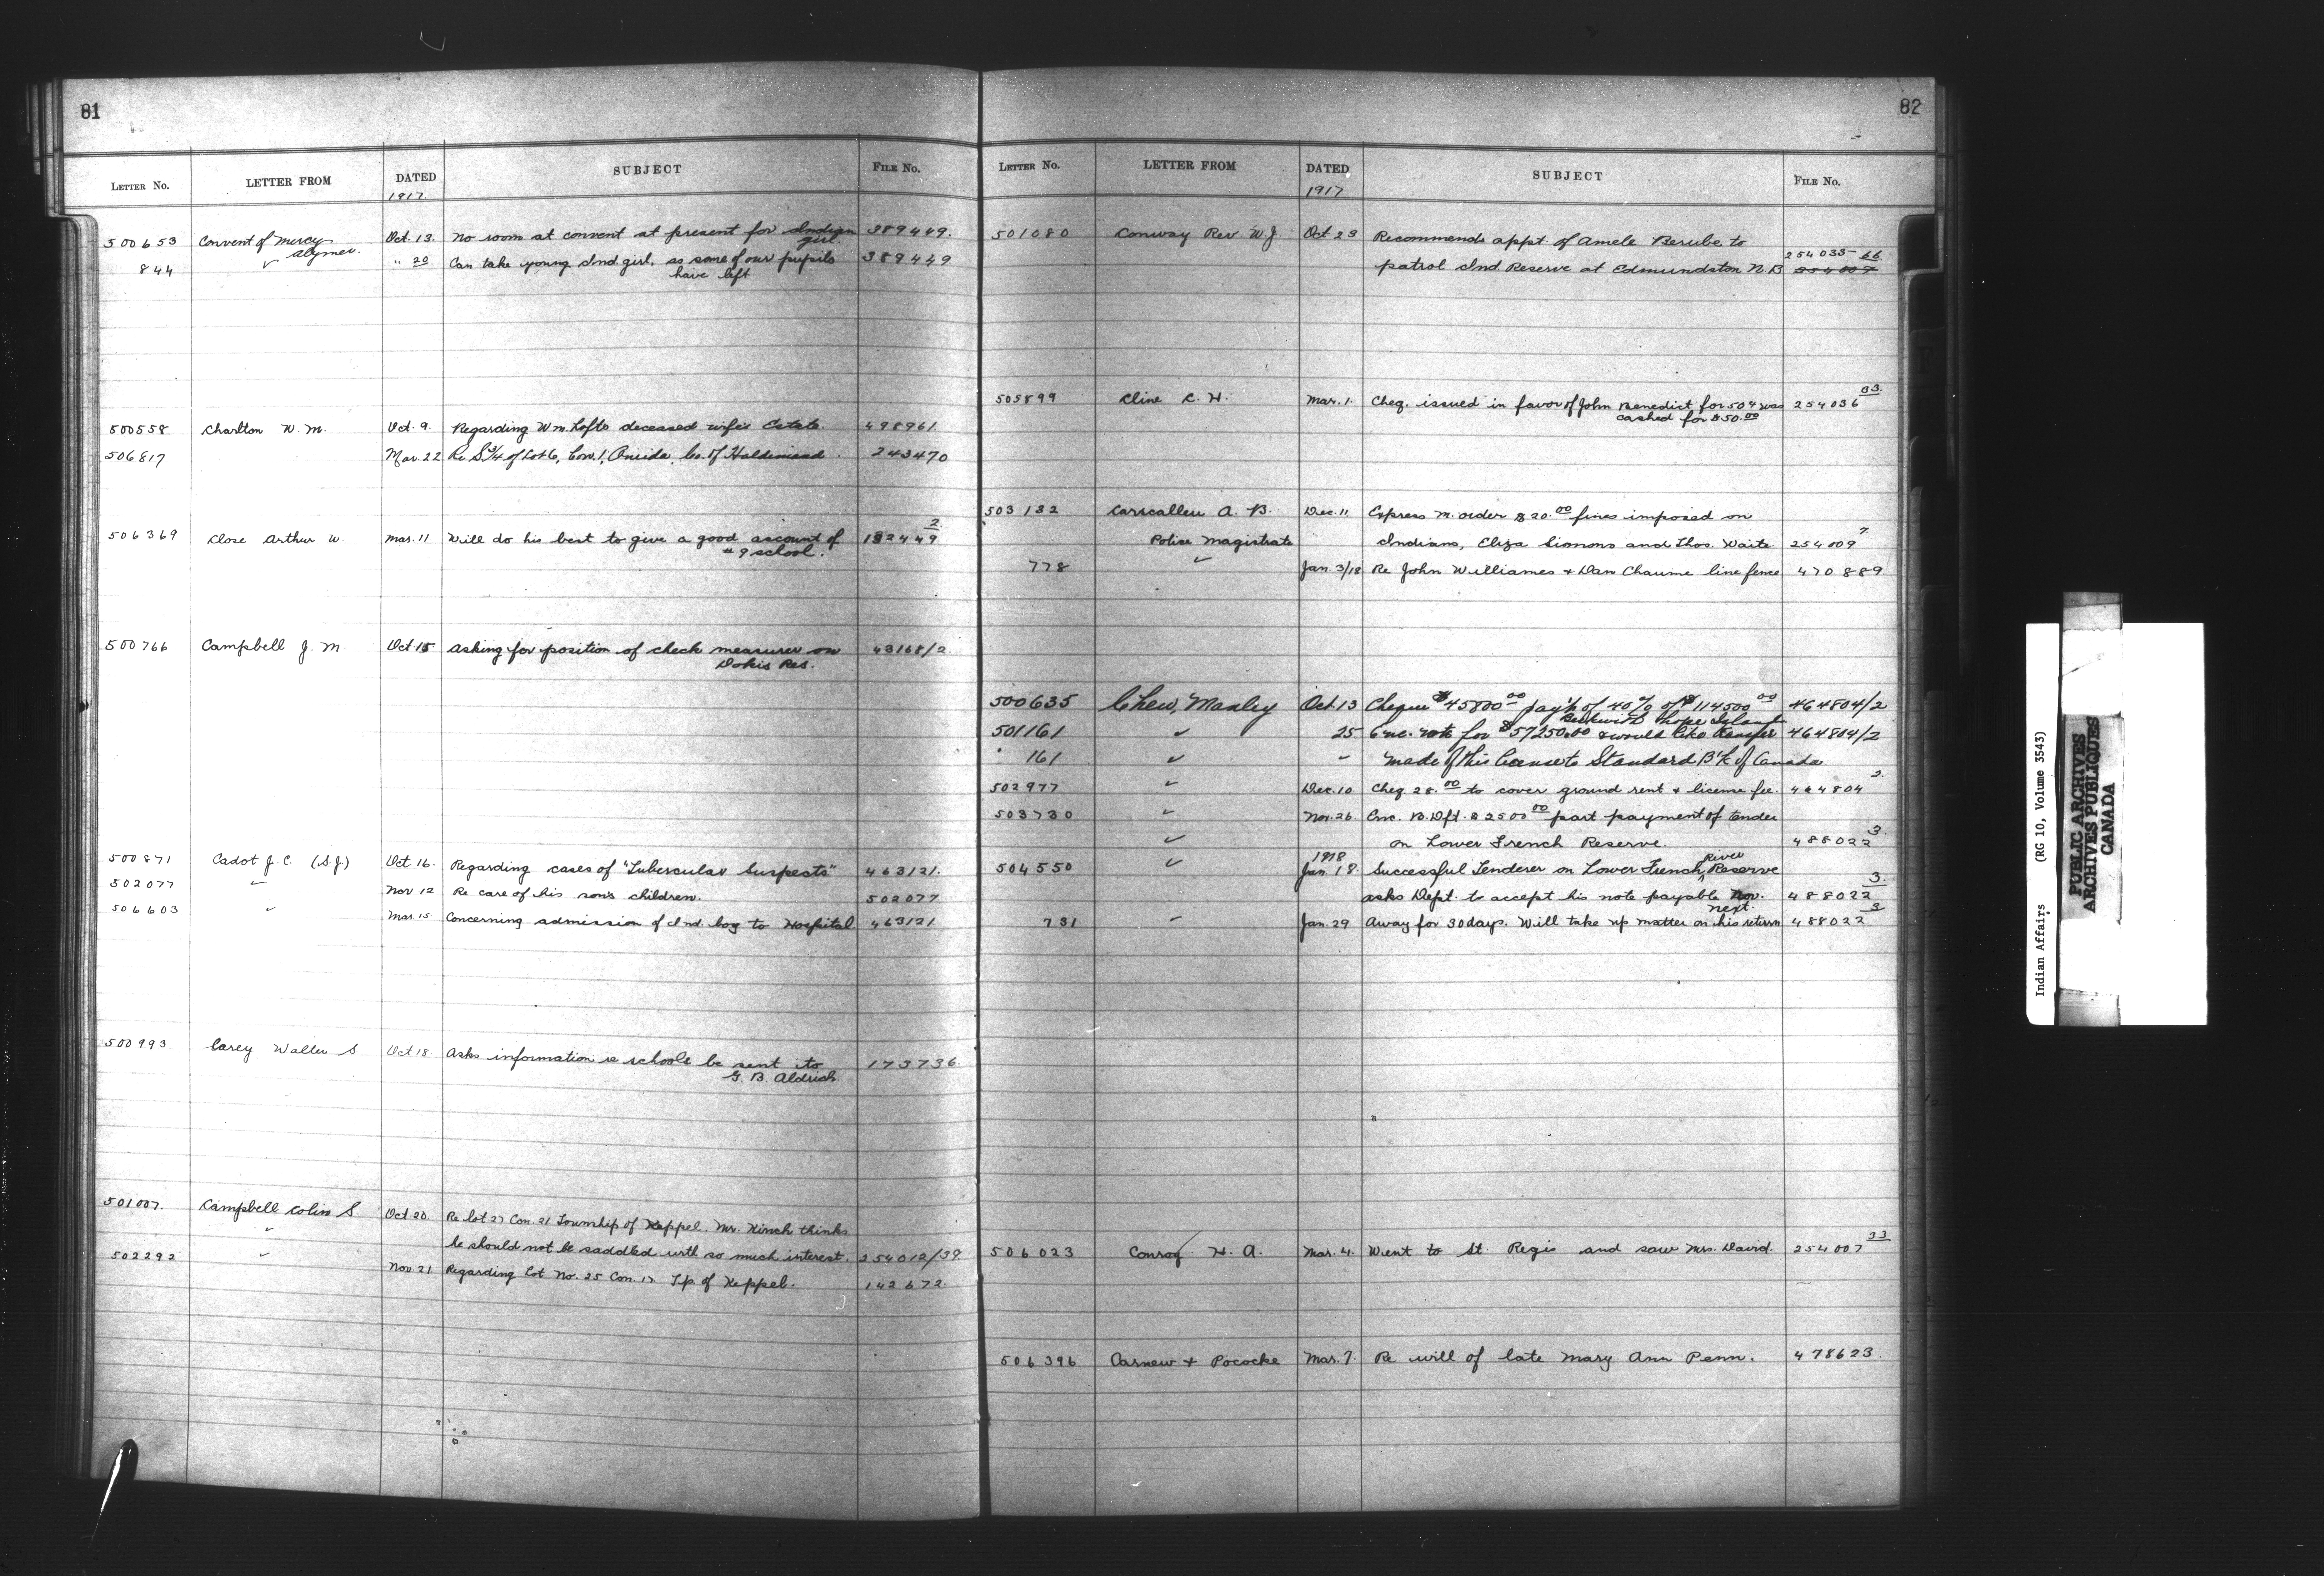 81
LETTER No. LETTER FROM DATED SUBJECT FILE No.
1917.
500653 Convent of Mercy Oct. 13. No room at convent at present for Indian 389449.
Alymer. girl.
844 ✓ " 20 Can take young Ind. girl. as some of our pupils 389449
have left
500558 Charlton W. M. Oct. 9. Regarding Wm. Lofts deceased wife's Estate. 498961
506817 Mar. 22 Re S¾ of Lot 6, Con. 1, Oneida, Co. of Haldimand. 243470
506369 Close Arthur W. Mar. 11 Will do his best to give a good account of 182449 2
#9 school.
500766 Campbell J. M. Oct. 15 Asking for position of check measurer on 43168/2
Dokis Res.
500871 Cadot J. C. (S.J) Oct. 16. Regarding cases of "Tubercular Suspects" 463121.
502077 ✓ Nov 12 Re care of his son's children. 502077
506603 ✓ Mar 15 Concerning admission of Ind. boy to Hospital 463121
500993 Carey Walter S Oct 18 Asks information re schools be sent to 173736
G. B. Aldrich
501007. Campbell Colin S. Oct. 20. Re lot 27 Con. 21 Township of Keppel. Mr. Kirsch thinks
✓ he should not be saddled with so much interest. 254012/39
502292 ✓ Nov. 21. Regarding Lot No. 25 Con. 17 Tp. of Keppel. 142672.
82
LETTER No. LETTER FROM DATED SUBJECT FILE No.
1917
501080 Conway Rev. W. J. Oct 23 Recommends appt. of Amele Berube to
254035-66
patrol Ind Reserve at Edmundston N. B 254007
505899 Cline C. H. Mar. 1. Cheq. issued in favor of John Benedict for 50¢ was 254036 33.
cashed for $50.00
503182 Carscallen A. B. Dec. 11. Express M. order $20.00 fines imposed on
Police Magistrate Indians, Eliza Simons and Thos. Waite. 254009 7.
778 ✓ Jan 3/18 Re John Williames + Dan Chaume line fence 470889.
500635 Chew, Manley Oct. 13 Cheque $45800.00 pay't of 40% of $114500.00 464804/2
Beckwith Hope Island
501161 ✓ 25 Enc. note for $57250.00 & would like transfer 464804/2
161 ✓ " made of this license to Standard B'k of Canada
502977 ✓ Dec. 10 Cheq 28.00 to cover ground rent + license fee. 464804 2.
503730 ✓ Nov. 26. Enc. B. Dft. $2500.00 part payment of tender
✓ on Lower French Reserve. 488022 3.
1918
504550 ✓ Jan. 18. Successful Tenderer on Lower French River Reserve
asks Dept. to accept his note payable Nov. 488022 3.
next.
731 ✓ Jan. 29 Away for 30 days. Will take up matter on his return 488022 3
506023 Conroy H. A. Mar. 4. Went to St. Regis and saw Mrs. David. 254007 33
506396 Carnew + Pococke Mar. 7. Re will of late Mary Ann Penn. 478623.
Indian Affairs (RG 10, Volume 3543)
PUBLIC ARCHIVES
ARCHIVES PUBLIQUES
CANADA